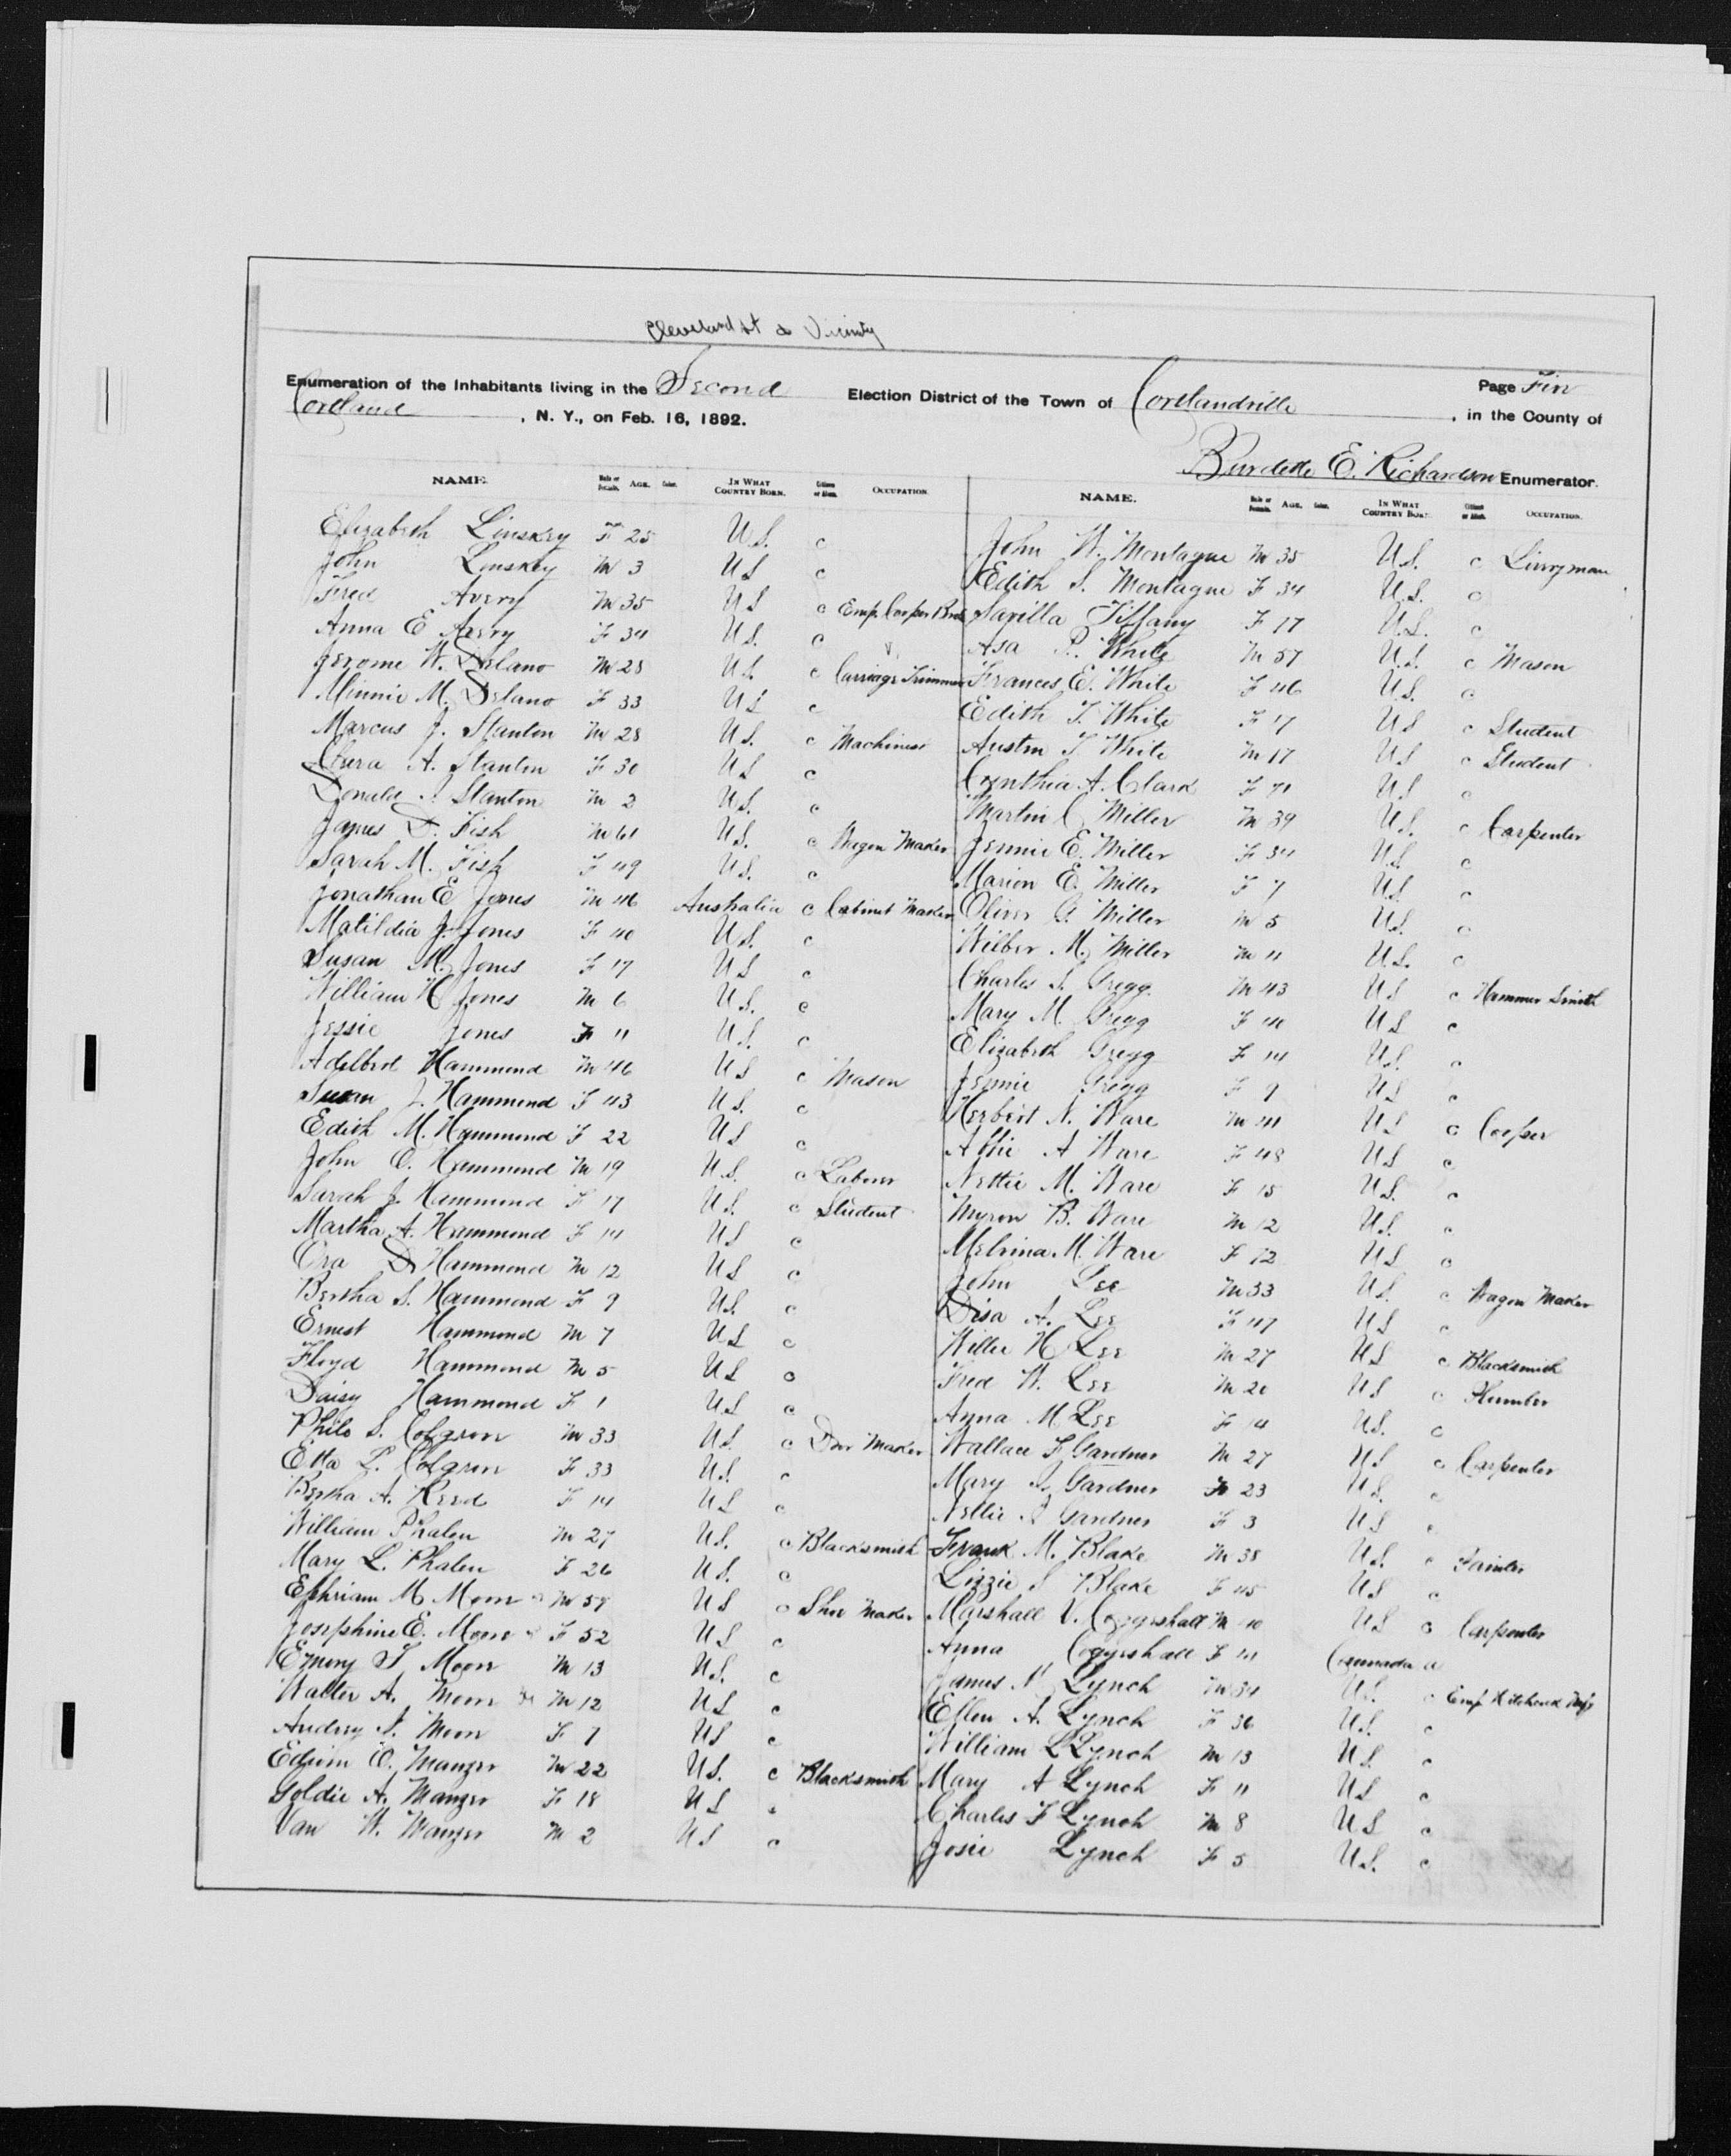 Cleveland St & Vicinity
Enumeration of the Inhabitants living in the Second Election District of the Town of Cortlandville Page
Cortland, N. Y., on Feb. 16, 1892. , in the County of
Burdette E. Richardson Enumerator.
NAME. Male or Female. AGE. Color. IN WHAT COUNTRY BORN. Citizen or Alien. OCCUPATION.
Elizabeth Linskey F 25 U.S. c
John Linskey M 3 U.S c
Fred Avery M 35 U.S c Emp. Cooper Bros
Anna E Avery F 34 U.S. c
Jerome W. Delano M 28 U.S c Carriage Trimmer
Minnie M. Delano F 33 U.S c
Marcus J. Stanton M 28 U.S. c Machinist
Clura A. Stanton F 30 U.S c
Donald Stanton M 2 U.S. c
James D. Fish M 61 U.S. c Wagon Maker
Sarah M. Fish F 49 U.S. c
Jonathan E Jones M 46 Australia c Cabinet Maker
Matildia J. Jones F 40 U.S. c
Susan M. Jones F 17 U.S c
William H Jones M 6 U.S. c
Jessie Jones F 11 U.S. c
Adelbert Hammond M 46 U.S c Mason
Susan J. Hammond F 43 U.S. c
Edith M. Hammond F 22 U.S c
John O. Hammond M 19 U.S. c Laborer
Sarah J. Hammond F 17 U.S. c Student
Martha A. Hammond F 14 U.S c
Ora D Hammond M 12 U.S c
Bertha S. Hammond F 9 U.S. c
Ernest Hammond M 7 U.S c
Floyd Hammond M 5 U.S c
Daisy Hammond F 1 U.S c
Philo S. Colgrove M 33 U.S. c Door Maker
Etta L. Colgrove F 33 U.S. c
Bertha A. Reed F 14 U.S c
William Phalen M 27 U.S. c Blacksmith
Mary L. Phalen F 26 U.S. c
Ephriam M Moon M 57 U.S c Shoe Maker
Josephine E. Moon F 52 U.S c
Emory T Moon M 13 U.S. c
Walter A. Moon M 12 U.S c
Audrey Moon F 7 U.S c
Edwin O. Manzer M 22 U.S. c Blacksmith
Goldie A. Manzer F 18 U.S c
Van W. Manzer M 2 U.S c
NAME. Male or Female. AGE. Color. IN WHAT COUNTRY BORN. Citizen or Alien. OCCUPATION.
John W. Montague M 35 U.S. c Liveryman
Edith S. Montague F 34 U.S. c
Savilla Tiffany F 17 U.S. c
Asa P. White M 57 U.S. c Mason
Frances E. White F 46 U.S. c
Edith T. White F 17 U.S c Student
Austin T White M 17 U.S c Student
Cynthia A. Clark F 71 U.S c
Martin C Miller M 39 U.S. c Carpenter
Jennie E. Miller F 34 U.S. c
Marion E. Miller F 7 U.S. c
Oliver G. Miller M 5 U.S. c
Wilber M. Miller M 11 U.S. c
Charles S. Gregg M 43 U.S c Hammer Smith
Mary M. Gregg F 41 U.S c
Elizabeth Gregg F 14 U.S. c
Jennie Gregg F 9 U.S c
Herbert N. Ware M 41 U.S c Cooper
Abbie A Ware F 48 U.S c
Nettie M. Ware F 15 U.S. c
Myron B. Ware M 12 U.S. c
Melvina M. Ware F 12 U.S c
John Lee M 33 U.S. c Wagon Maker
Disa A. Lee F 47 U.S c
Willie H Lee M 27 U.S c Blacksmith
Fred W. Lee M 20 U.S c Plumber
Anna M Lee F 14 U.S. c
Wallace F. Gardner M 27 U.S c Carpenter
Mary Gardner F 23 U.S. c
Nellie Gardner F 3 U.S c
Frank M. Blake M 38 U.S. c Painter
Lizzie S Blake F 45 U.S c
Marshall V. Coggeshall M 40 U.S c Carpenter
Anna Coggeshall F 41 Cannada a
James Lynch M 34 U.S. c Emp. Hitchcock Mfg
Ellen A. Lynch F 36 U.S. c
William L Lynch M 13 U.S. c
Mary A Lynch F 11 U.S c
Charles F Lynch M 8 U.S c
Josie Lynch F 5 U.S. c